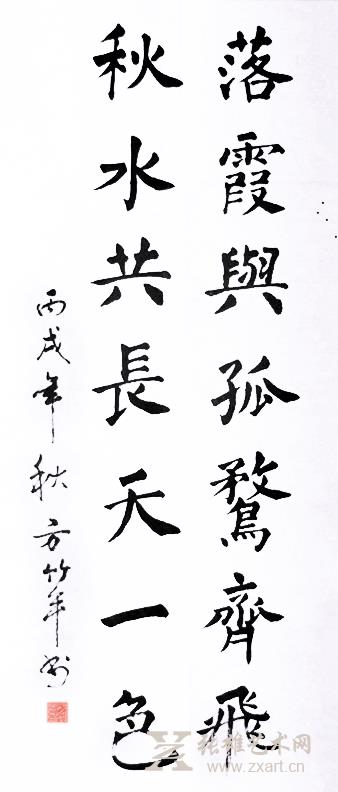 落霞與孤鶩齊飛
秋水共長天一色
丙戌年秋方竹年書
张雄艺术网
www.zxart.cn